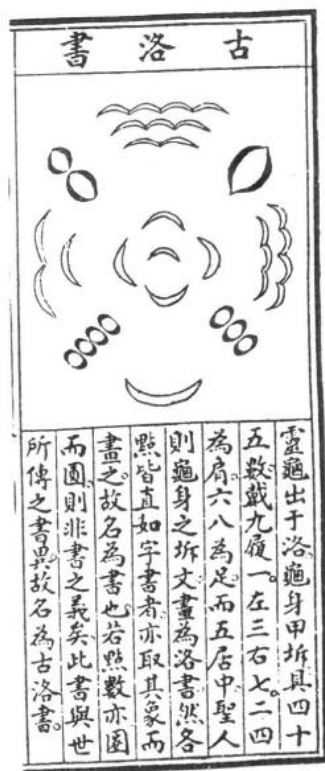 古洛書
靈龜出于洛龜身甲坼具四十
五數載九履一。左三右七。二四
為肩。六八為足。而五居中聖人
則龜身之坼文畫為洛書然各
點皆直如字書者亦取其象而
畫之。故名為書也若點數亦圈
而圓。則非書之義矣此書與世
所傳之書異。故名為古洛書。